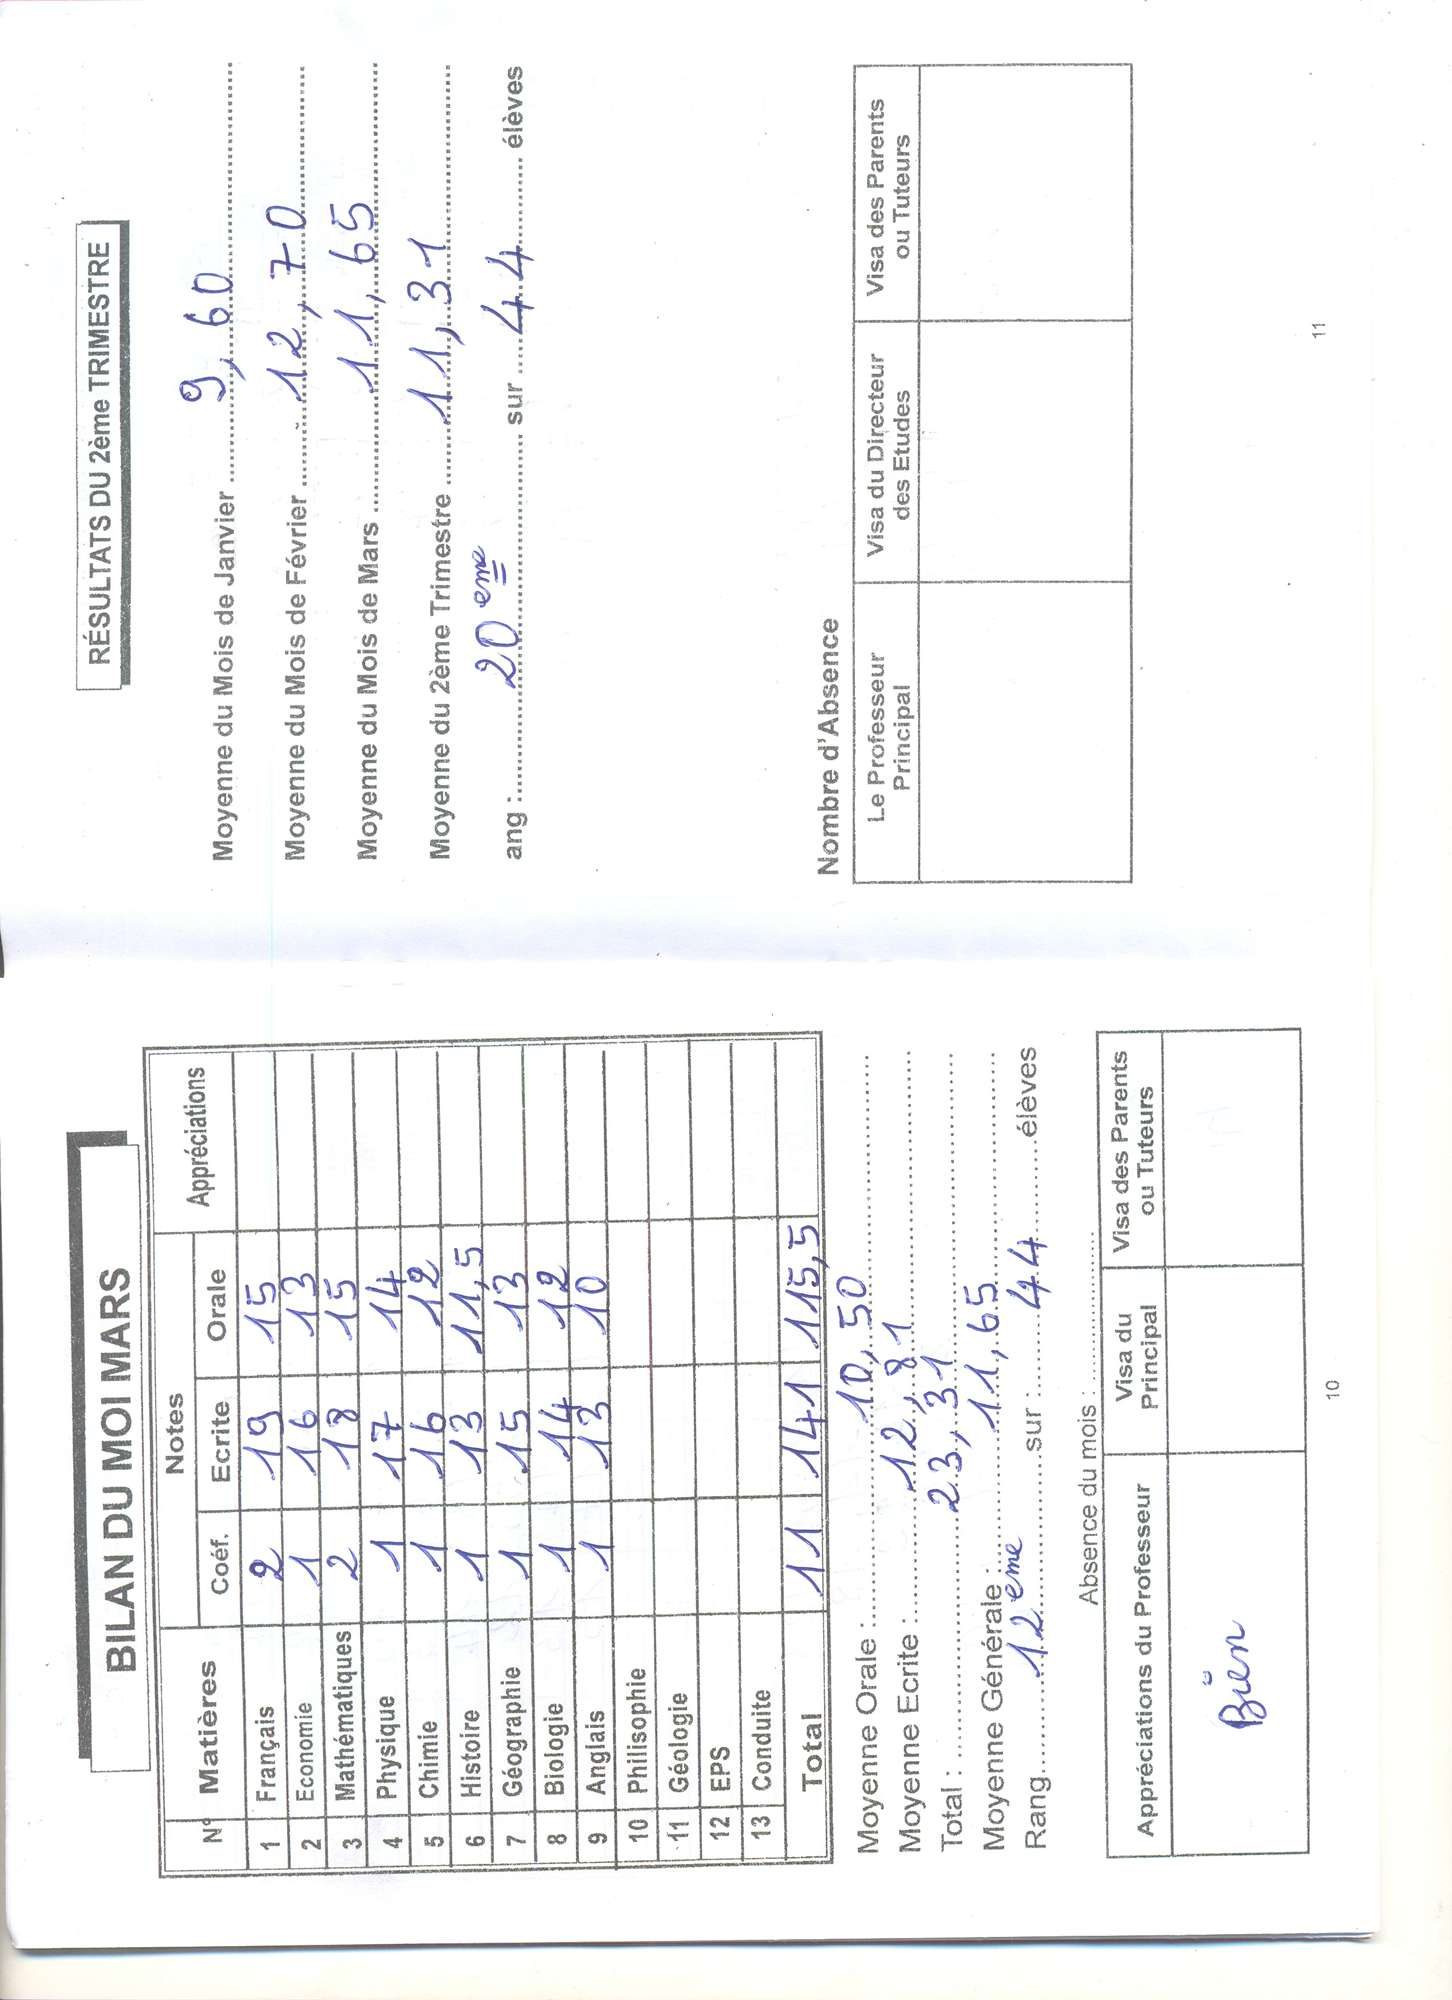 BILAN DU MOI MARS
N° Matières Notes Appréciations
Coéf. Ecrite Orale
1 Français 2 19 15
2 Economie 1 16 13
3 Mathématiques 2 18 15
4 Physique 1 17 14
5 Chimie 1 16 12
6 Histoire 1 13 11,5
7 Géographie 1 15 13
8 Biologie 1 14 12
9 Anglais 1 13 10
10 Philisophie
11 Géologie
12 EPS
13 Conduite
Total 11 141 115,5
Moyenne Orale : 10,50
Moyenne Ecrite : 12,81
Total : 23,31
Moyenne Générale : 11,65
Rang 12eme sur : 44 élèves
Absence du mois :
Appréciations du Professeur
Visa du Principal
Visa des Parents ou Tuteurs
Bien
10
RÉSULTATS DU 2ème TRIMESTRE
Moyenne du Mois de Janvier 9,60
Moyenne du Mois de Février 12,70
Moyenne du Mois de Mars 11,65
Moyenne du 2ème Trimestre 11,31
ang : 20eme sur 44 élèves
Nombre d'Absence
Le Professeur Principal
Visa du Directeur des Etudes
Visa des Parents ou Tuteurs
11